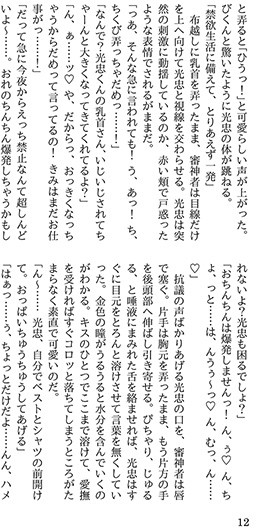 と弄ると「ひうっ！」と可愛らしい声が上がった。
びくんと驚いたように光忠の体が跳ねる。
「禁欲生活に備えて、とりあえず一発」
　布越しに乳首を弄ったまま、審神者は目線だけ
を上へ向けて光忠と視線を交わらせる。光忠は突
然の刺激に動揺しているのか、赤い頬で戸惑った
ような表情でされるがままだ。
「つぁ、そんな急に言われても！　う、あっ！　ち、
ちくび弄っちゃだめっ……！」
「なんで？光忠くんの乳首さん、いじいじされてち
ゃーんと大きくなってきてくれてるよ？」
「ん、ぁ……ッ♡　や、だからっ、おっきくなっち
ゃうからだめって言ってるの！きみはまだお仕
事がっ……！」
「だって急に今夜からえっち禁止なんて超しんど
いよ～……。おれのちんちん爆発しちゃうかもし
れないよ？光忠も困るでしょ？」
「おちんちんは爆発しませんっ！ん、ぅ♡ん、ち
ょ、っと……は、んうぅ～っ♡ん、むっ、ん……
♡
　抗議の声ばかりあげる光忠の口を、審神者は唇
で塞ぐ。片手は胸元を弄ったまま、もう片方の手
を後頭部へ伸ばし引き寄せる。ぴちゃり、じゅる
る、と唾液にまみれた舌を絡ませれば、光忠はす
ぐに目元をとろんと溶けさせて言葉を無くしてい
った。金色の瞳がうるうると水分を含んでいくの
がわかる。キスのひとつでここまで溶けて、愛撫
を受ければすぐコロッと落ちてしまうところがた
まらなく素直で可愛いのだ。
「ん～……　光忠、自分でベストとシャツの前開け
て。おっぱいちゅうちゅうしてあげる」
「はぁっ……ぅ、ちょっとだけだよ……んん、ハメ
12